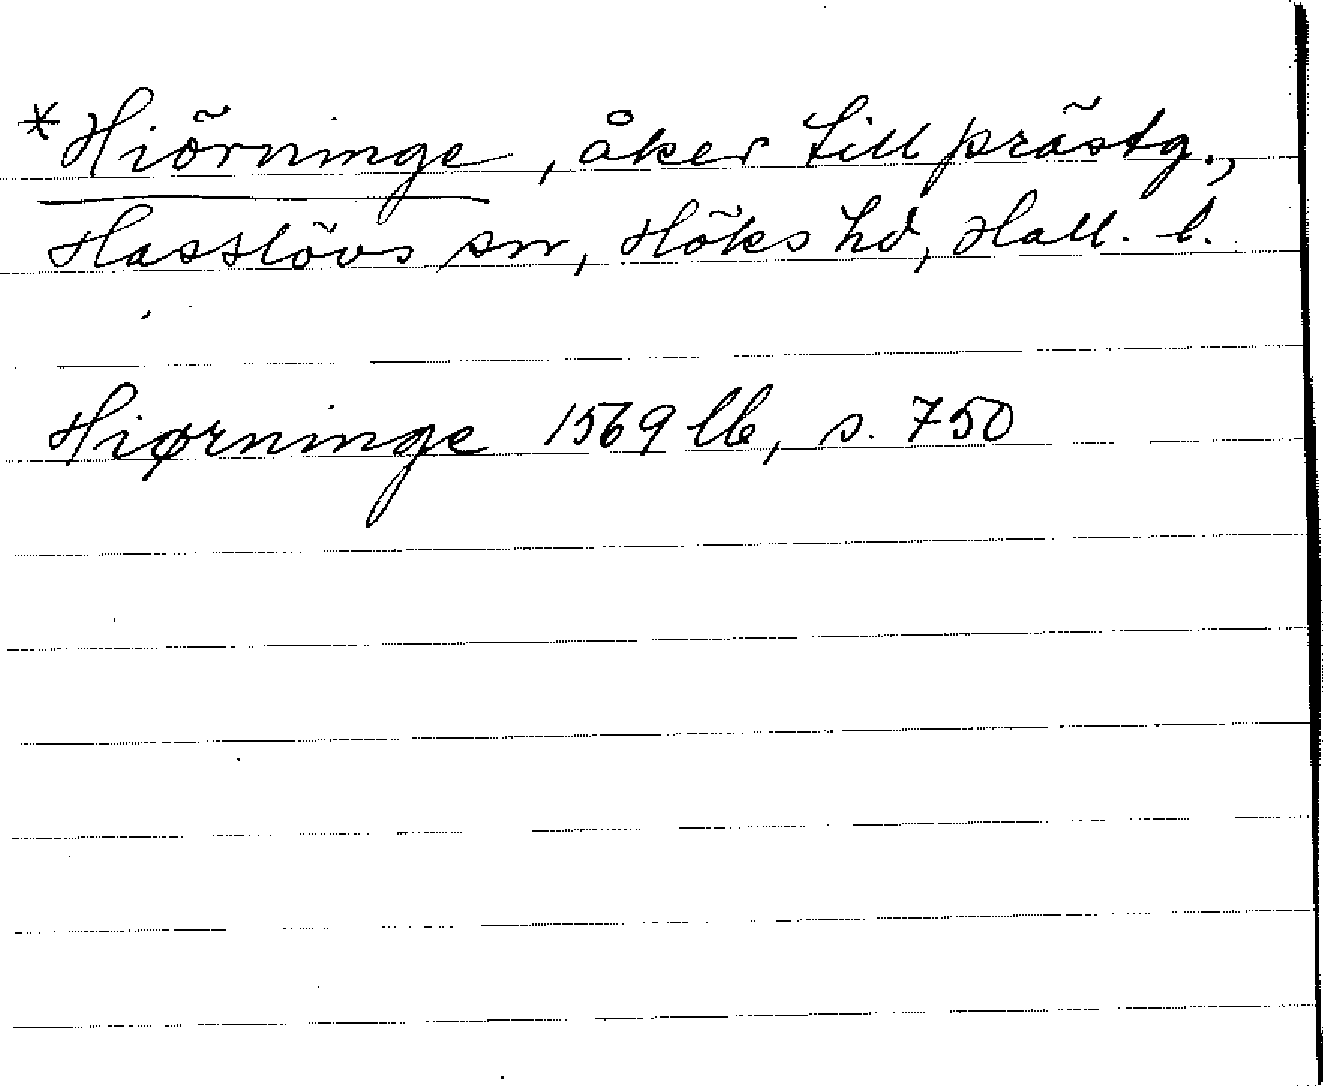 *Hiörninge, åker till prästg.,
Hasslövs sn, Höks hd, Hall. l.
Hiørninge 1569 lb, s. 750